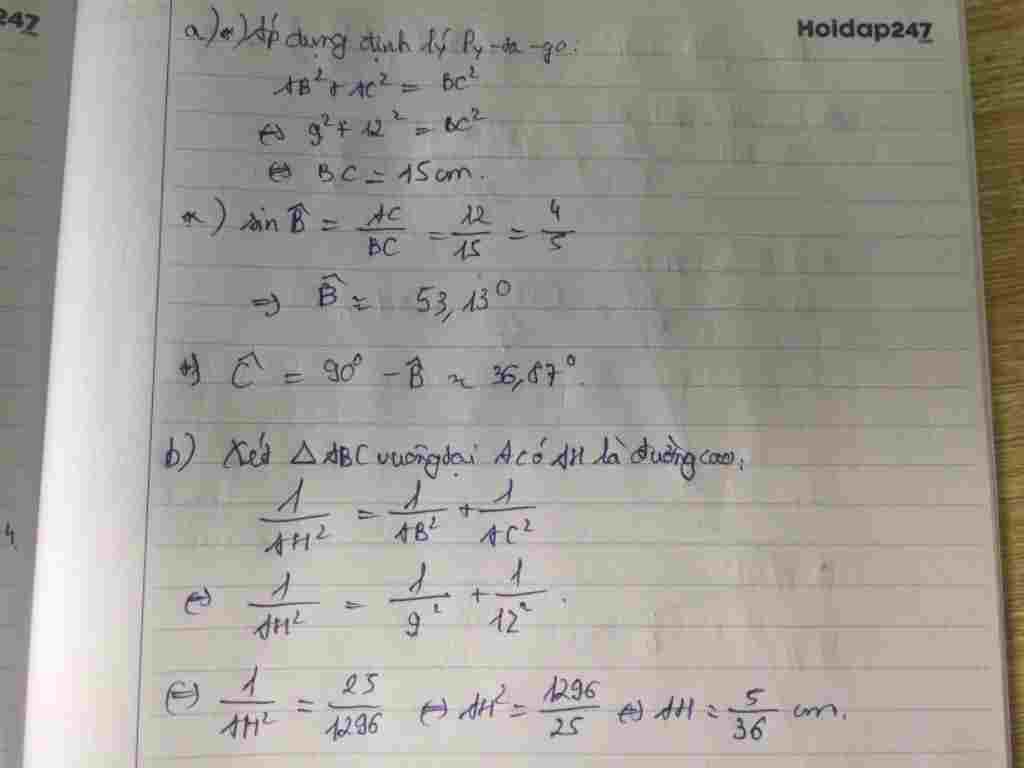 247
Hoidap247
a) *) Áp dụng định lý Py-ta-go:
AB² + AC² = BC²
⇔ 9² + 12² = BC²
⇔ BC = 15 cm.
*) sin B̂ = AC/BC = 12/15 = 4/5
⇒ B̂ ≈ 53,13°
*) Ĉ = 90° - B̂ ≈ 36,87°.
b) Xét △ ABC vuông tại A có AH là đường cao,
1/AH² = 1/AB² + 1/AC²
⇔ 1/AH² = 1/9² + 1/12².
⇔ 1/AH² = 25/1296 ⇔ AH² = 1296/25 ⇔ AH = 5/36 cm.
4